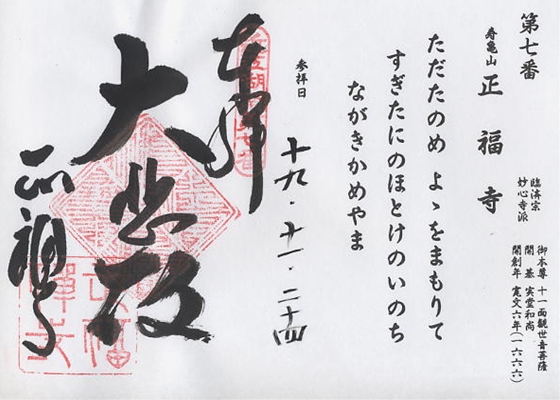 第七番
寿亀山 正福寺
臨済宗
妙心寺派
御本尊 十一面観世音菩薩
開基 実堂和尚
開創年 寛文六年(一六六六)
ただたのめ よゝをまもりて
すぎたにのほとけのいのち
ながきかめやま
参拝日
十九・十一・二十四
奉拝
大悲殿
正福寺